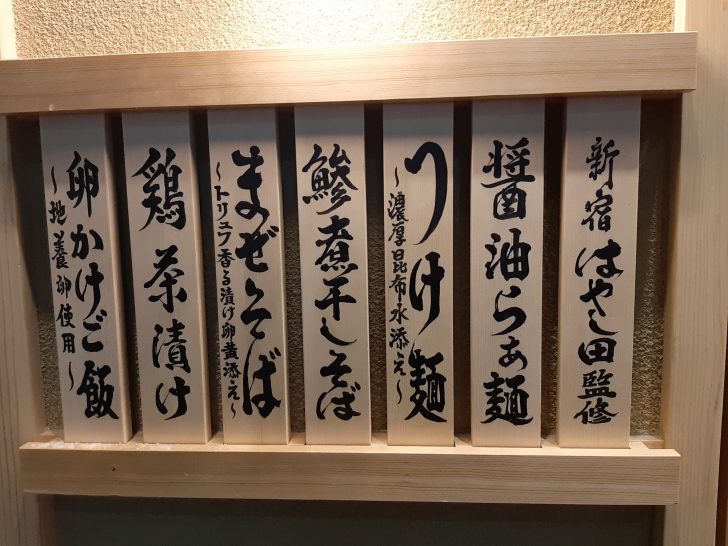 新宿はやし田監修
醤油らぁ麺
つけ麺
～濃厚昆布水添え～
鯵煮干しそば
まぜそば
～トリュフ香る漬け卵黄添え～
鶏茶漬け
卵かけご飯
～地養卵使用～